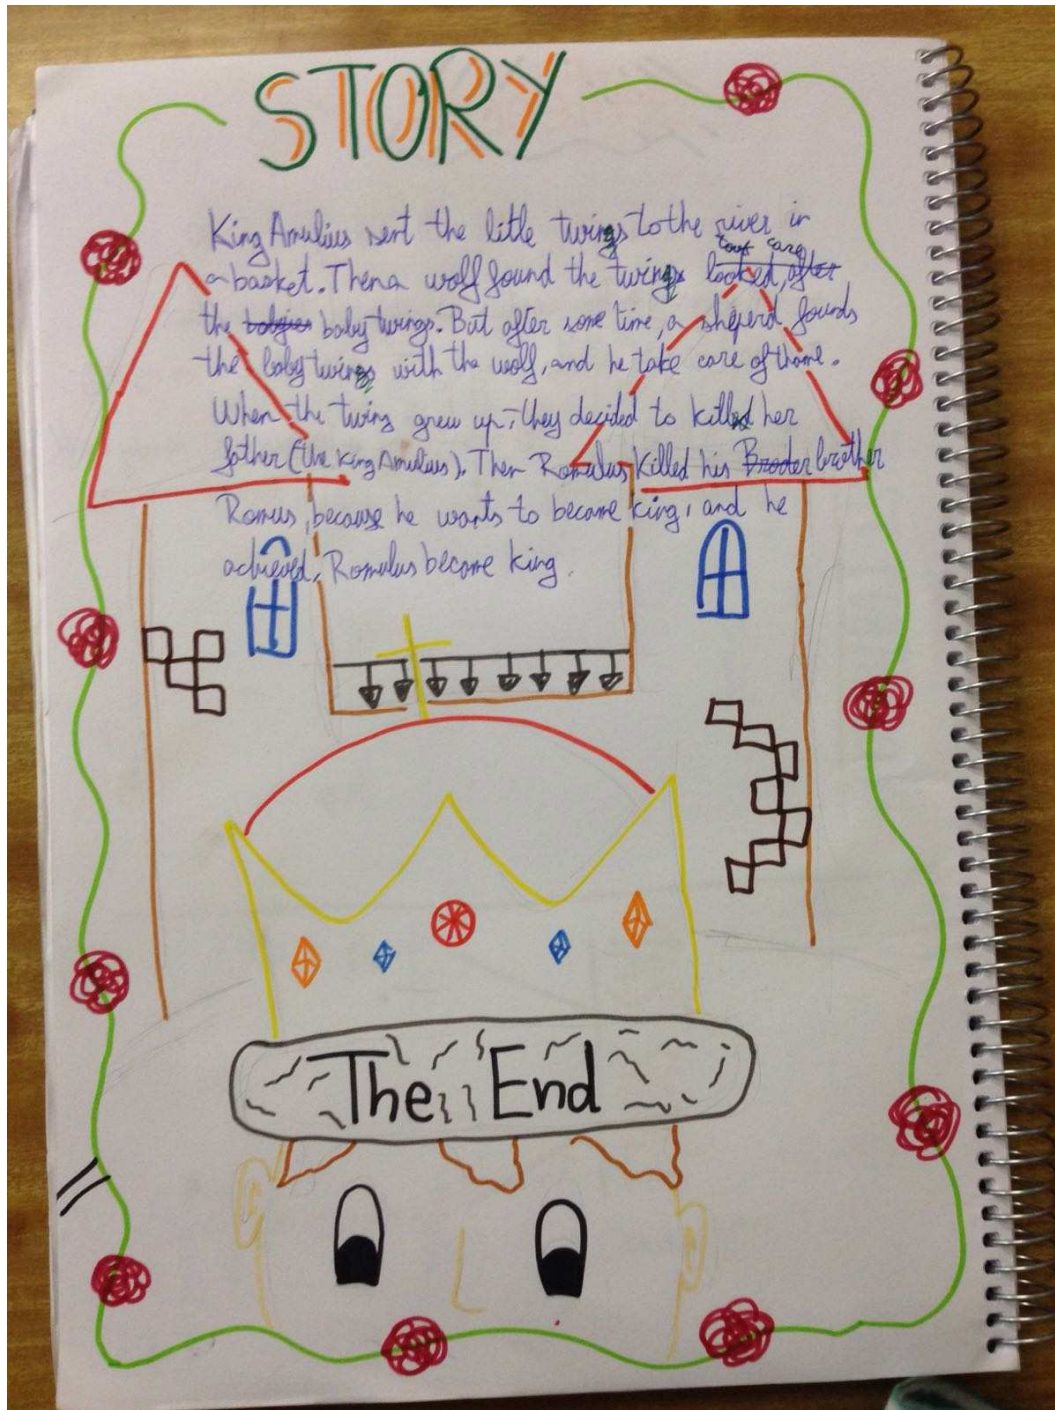 STORY
King Amulius sent the little twings to the river in
a basket. Then a wolf found the twings looked after
the baby twings. But after some time, a sheperd founds
the baby twings with the wolf, and he take care of thome.
When the twins grew up, they decided to killed her
father (the King Amulius). Then Romulus killed his Broder brother
Romus, because he wants to become king, and he
achieved. Romulus become king.
The End